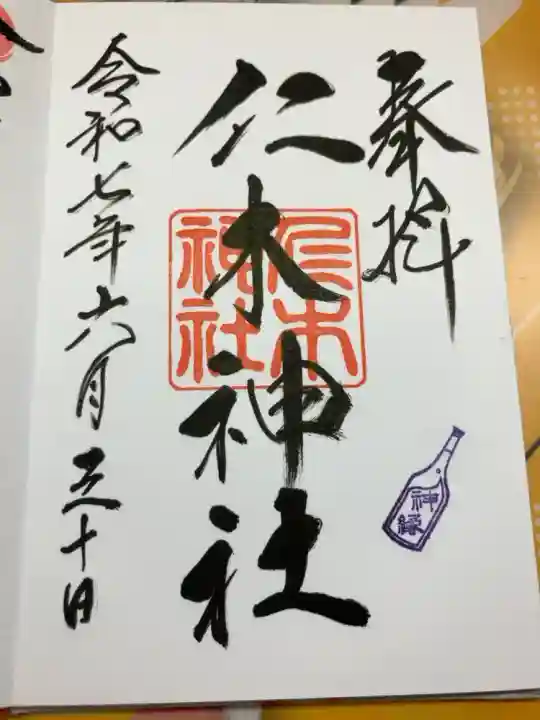 奉拝
仁木神社
仁木神社
神縁
令和七年六月三十日